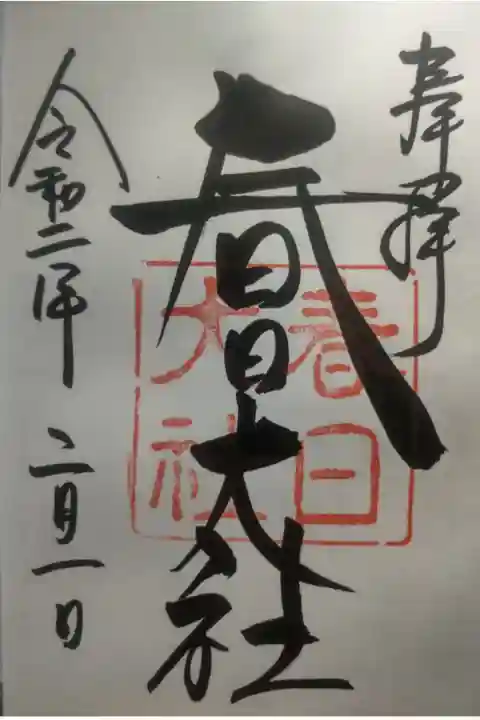 奉拝
春日大社
春日大社
令和二年 二月一日